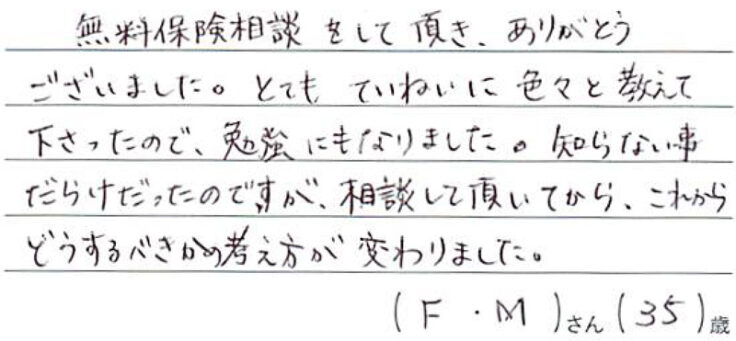 無料保険相談をして頂き、ありがとう
ございました。とても ていねいに 色々と教えて
下さったので、勉強にもなりました。知らない事
だらけだったのですが、相談して頂いてから、これから
どうするべきかの考え方が変わりました。
(F・M)さん(35)歳